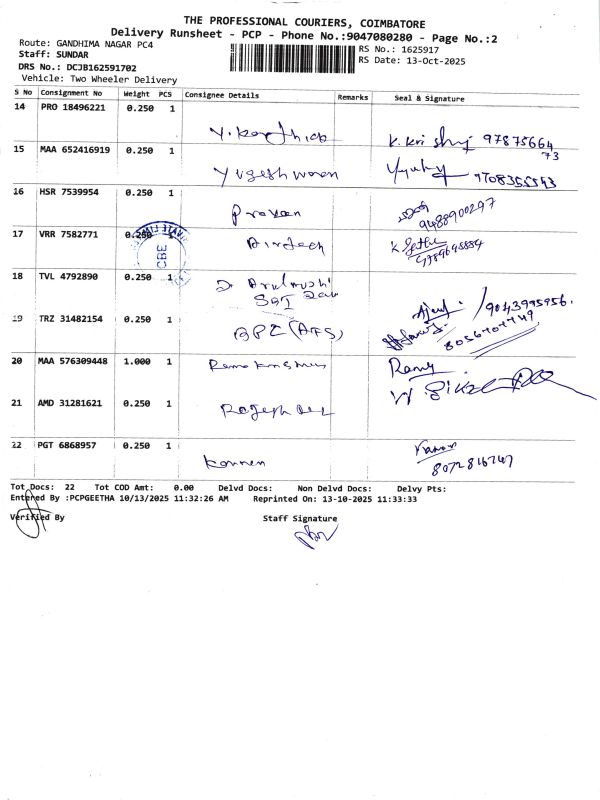 THE PROFESSIONAL COURIERS, COIMBATORE
Delivery Runsheet - PCP - Phone No.:9047080280 - Page No.:2
Route: GANDHIMA NAGAR PC4
Staff: SUNDAR
DRS No.: DCJB162591702
Vehicle: Two Wheeler Delivery
RS No.: 1625917
RS Date: 13-Oct-2025
S No Consignment No Weight PCS Consignee Details Remarks Seal & Signature
14 PRO 18496221 0.250 1
V. Karthick K. Kri 97875664
73
15 MAA 652416919 0.250 1
Yugeshwaran
16 HSR 7539954 0.250 1
Praveen 9488900297
17 VRR 7582771 0.250 1
Airtech
CBE
18 TVL 4792890 0.250 1
D Arulmozhi
SBI 9043995956.
19 TRZ 31482154 0.250 1
20 MAA 576309448 1.000 1
21 AMD 31281621 0.250 1
22 PGT 6868957 0.250 1
Kannan
Tot Docs: 22 Tot COD Amt: 0.00 Delvd Docs: Non Delvd Docs: Delvy Pts:
Entered By :PCPGEETHA 10/13/2025 11:32:26 AM Reprinted On: 13-10-2025 11:33:33
Verified By Staff Signature